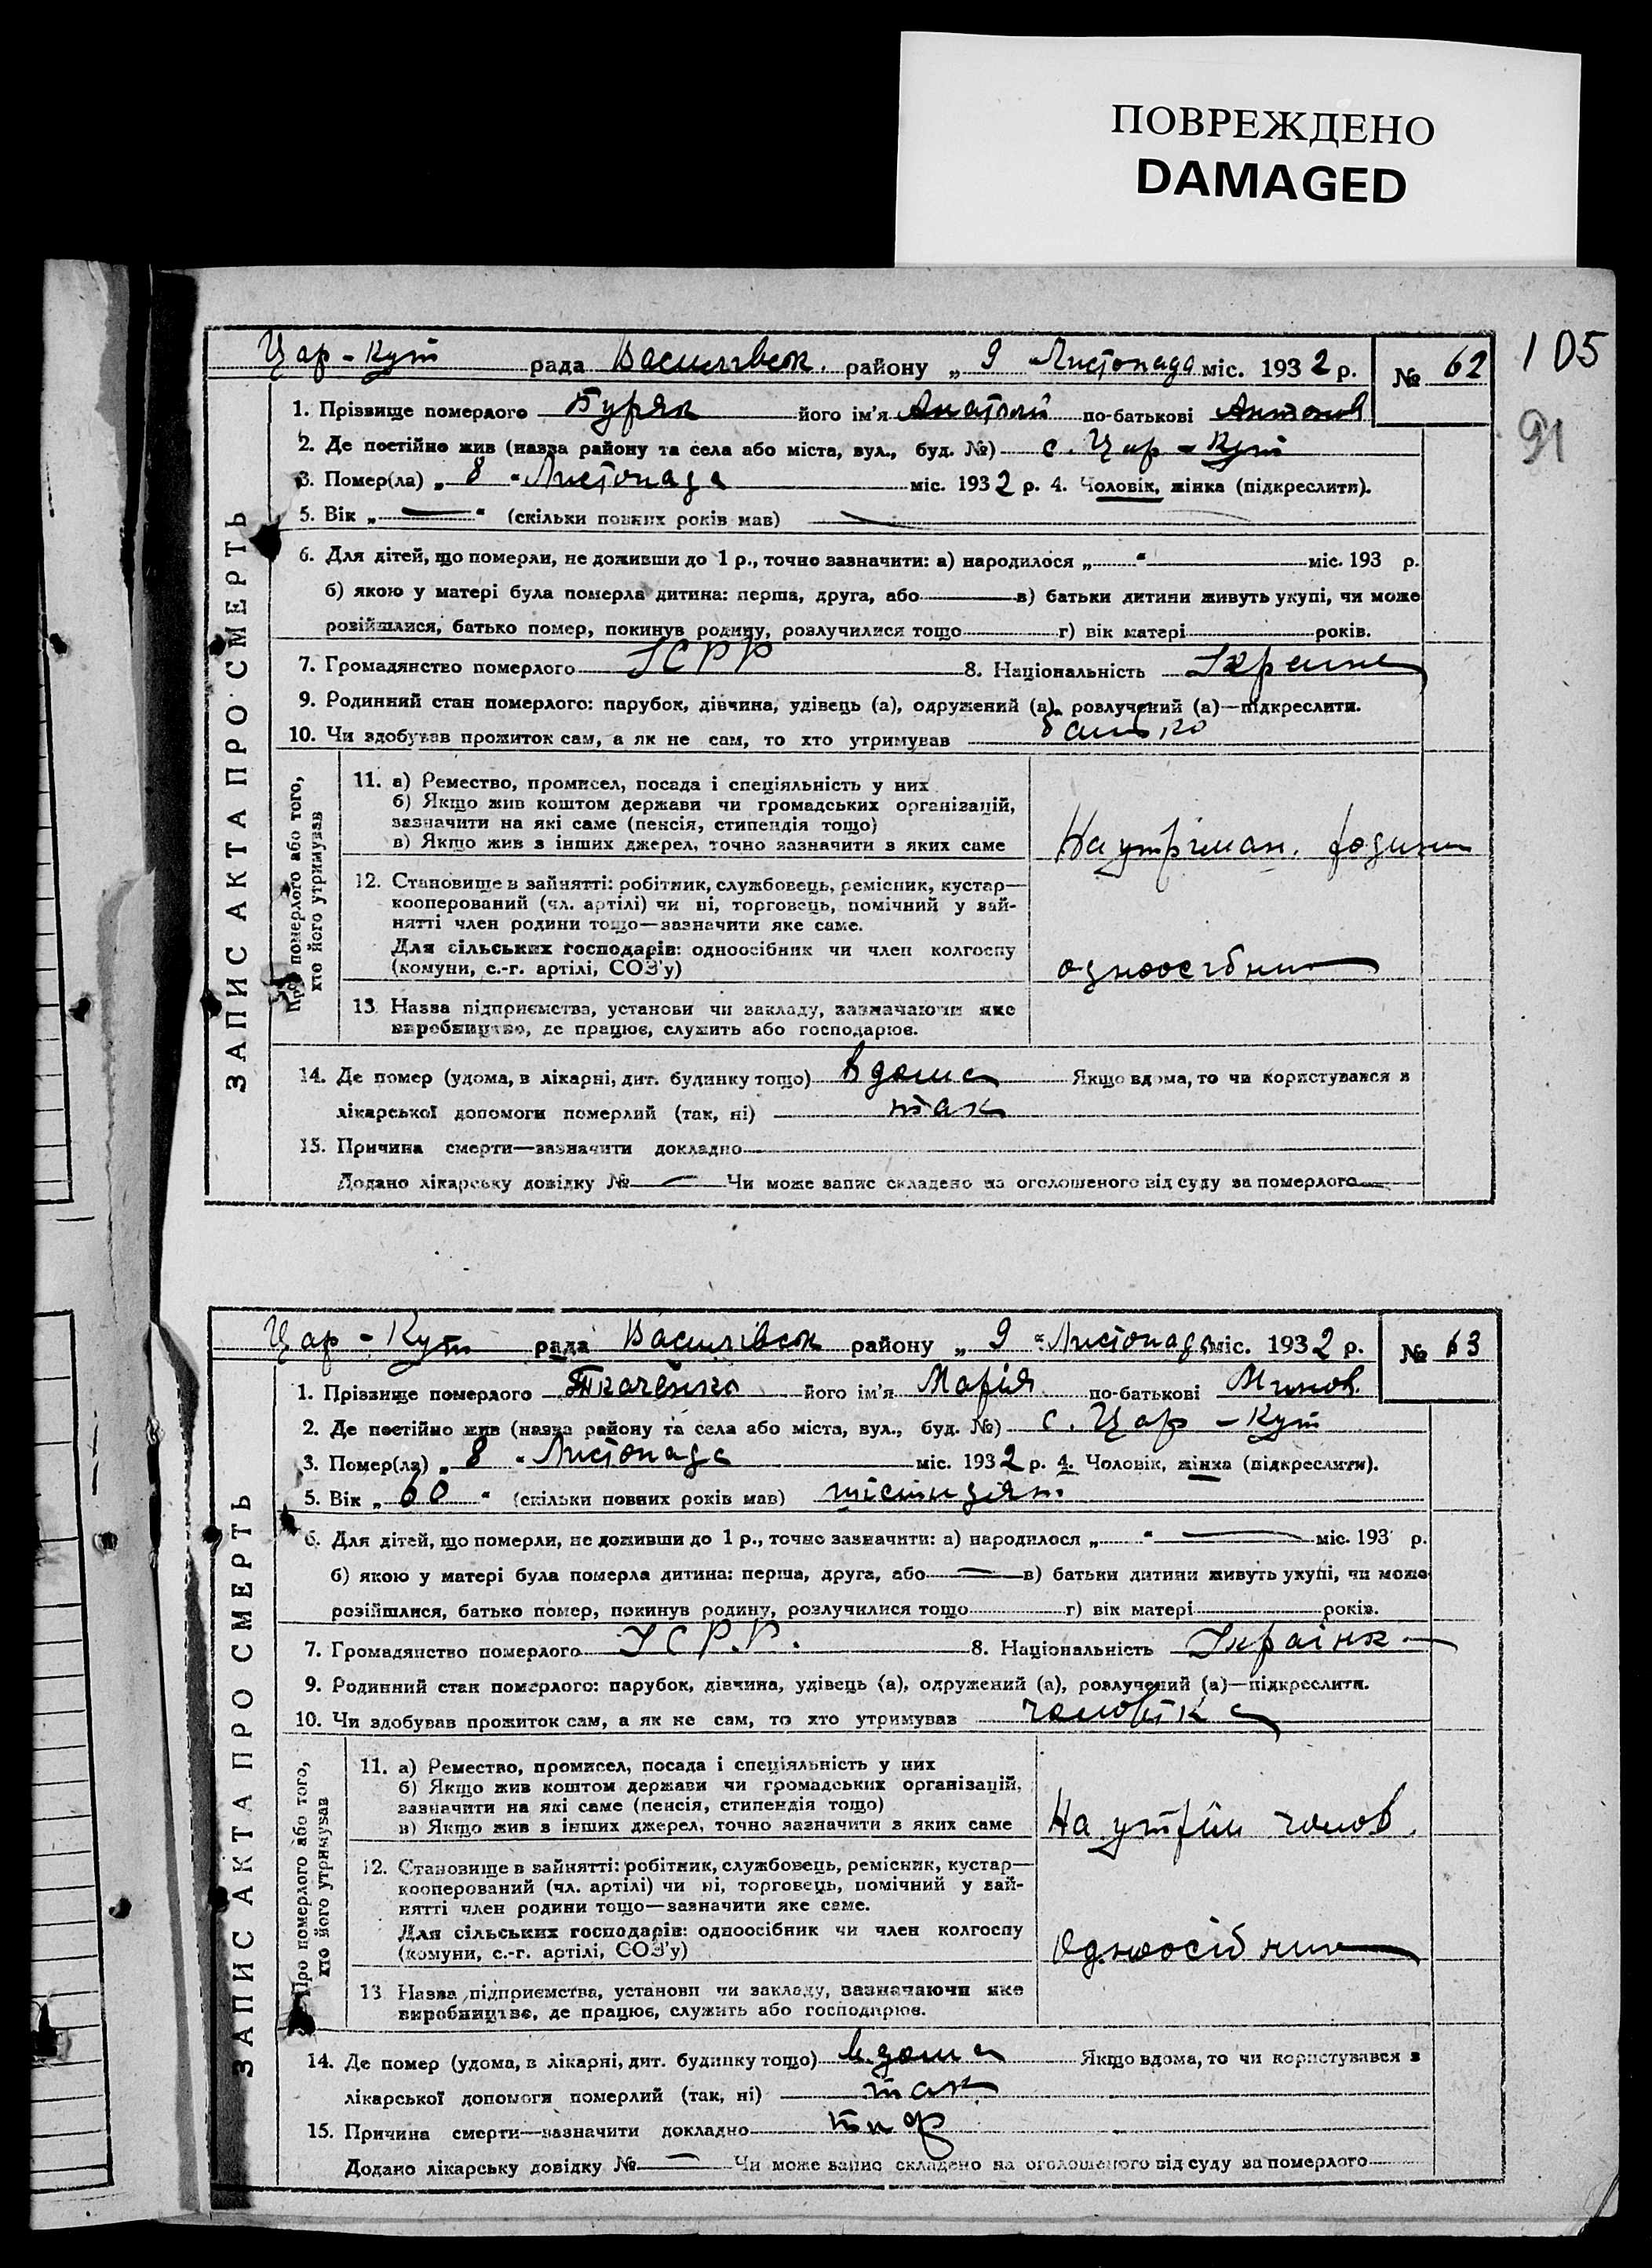 ПОВРЕЖДЕНО
DAMAGED
105
91
Цар-Кут рада Василівськ. району „ 9 Листопада міс. 1932 р. № 62
1. Прізвище померлого Буряк його ім'я Анатолій по-батькові Антонов
2. Де постійно жив (назва району та села або міста, вул., буд. №) с. Цар-Кут
3. Помер(ла) „ 8 “ Листопада міс. 1932 р. 4. Чоловік, жінка (підкреслити).
5. Вік „ — “ (скільки повних років мав) —
6. Для дітей, що померли, не доживши до 1 р., точно зазначити: а) народилося „ “ міс. 193 р.
б) якою у матері була померла дитина: перша, друга, або в) батьки дитини живуть укупі, чи може
розійшлися, батько помер, покинув родину, розлучилися тощо г) вік матері років.
7. Громадянство померлого УСРР 8. Національність
9. Родинний стан померлого: парубок, дівчина, удівець (а), одружений (а), розлучений (а)—підкреслити.
10. Чи здобував прожиток сам, а як не сам, то хто утримував батько
ЗАПИС АКТА ПРО СМЕРТЬ
Про померлого або того,
хто його утримував
11. а) Ремество, промисел, посада і спеціяльність у них
б) Якщо жив коштом держави чи громадських організацій,
зазначити на які саме (пенсія, стипендія тощо)
в) Якщо жив з інших джерел, точно зазначити з яких саме На утріман. родини
12. Становище в зайнятті: робітник, службовець, ремісник, кустар—
кооперований (чл. артілі) чи ні, торговець, помічний у зай-
нятті член родини тощо—зазначити яке саме.
Для сільських господарів: одноосібник чи член колгоспу
(комуни, с.-г. артілі, СОЗ'у) одноосібник
13. Назва підприємства, установи чи закладу, зазначаючи яке
виробництво, де працює, служить або господарює.
14. Де помер (удома, в лікарні, дит. будинку тощо) вдома Якщо вдома, то чи користувався з
лікарської допомоги померлий (так, ні) так
15. Причина смерти—зазначити докладно
Додано лікарську довідку № — Чи може запис складено на оголошеного від суду за померлого —
Цар-Кут рада Василівськ району „ 9 “ Листопада міс. 1932 р. № 63
1. Прізвище померлого Ткаченко його ім'я Марія по-батькові
2. Де постійно жив (назва району та села або міста, вул., буд. №) с. Цар-Кут
3. Помер(ла) „ 8 “ Листопада міс. 1932 р. 4. Чоловік, жінка (підкреслити).
5. Вік „ 60 “ (скільки повних років мав) шісттдіят
6. Для дітей, що померли, не доживши до 1 р., точно зазначити: а) народилося „ “ — міс. 193 р.
б) якою у матері була померла дитина: перша, друга, або — в) батьки дитини живуть укупі, чи може
розійшлися, батько помер, покинув родину, розлучилися тощо г) вік матері років.
7. Громадянство померлого УСР.Р. 8. Національність Українк
9. Родинний стан померлого: парубок, дівчина, удівець (а), одружений (а), розлучений (а)—підкреслити.
10. Чи здобував прожиток сам, а як не сам, то хто утримував человіка
ЗАПИС АКТА ПРО СМЕРТЬ
Про померлого або того,
хто його утримував
11. а) Ремество, промисел, посада і спеціяльність у них
б) Якщо жив коштом держави чи громадських організацій,
зазначити на які саме (пенсія, стипендія тощо)
в) Якщо жив з інших джерел, точно зазначити з яких саме На утрім чолов.
12. Становище в зайнятті: робітник, службовець, ремісник, кустар—
кооперований (чл. артілі) чи ні, торговець, помічний у зай-
нятті член родини тощо—зазначити яке саме.
Для сільських господарів: одноосібник чи член колгоспу
(комуни, с.-г. артілі, СОЗ'у) Одноосібник
13 Назва підприємства, установи чи закладу, зазначаючи яке
виробництво, де працює, служить або господарює.
14. Де помер (удома, в лікарні, дит. будинку тощо) вдома Якщо вдома, то чи користувався з
лікарської допомоги померлий (так, ні) так
15. Причина смерти—зазначити докладно тиф
Додано лікарську довідку № — Чи може запис складено на оголошеного від суду за померлого